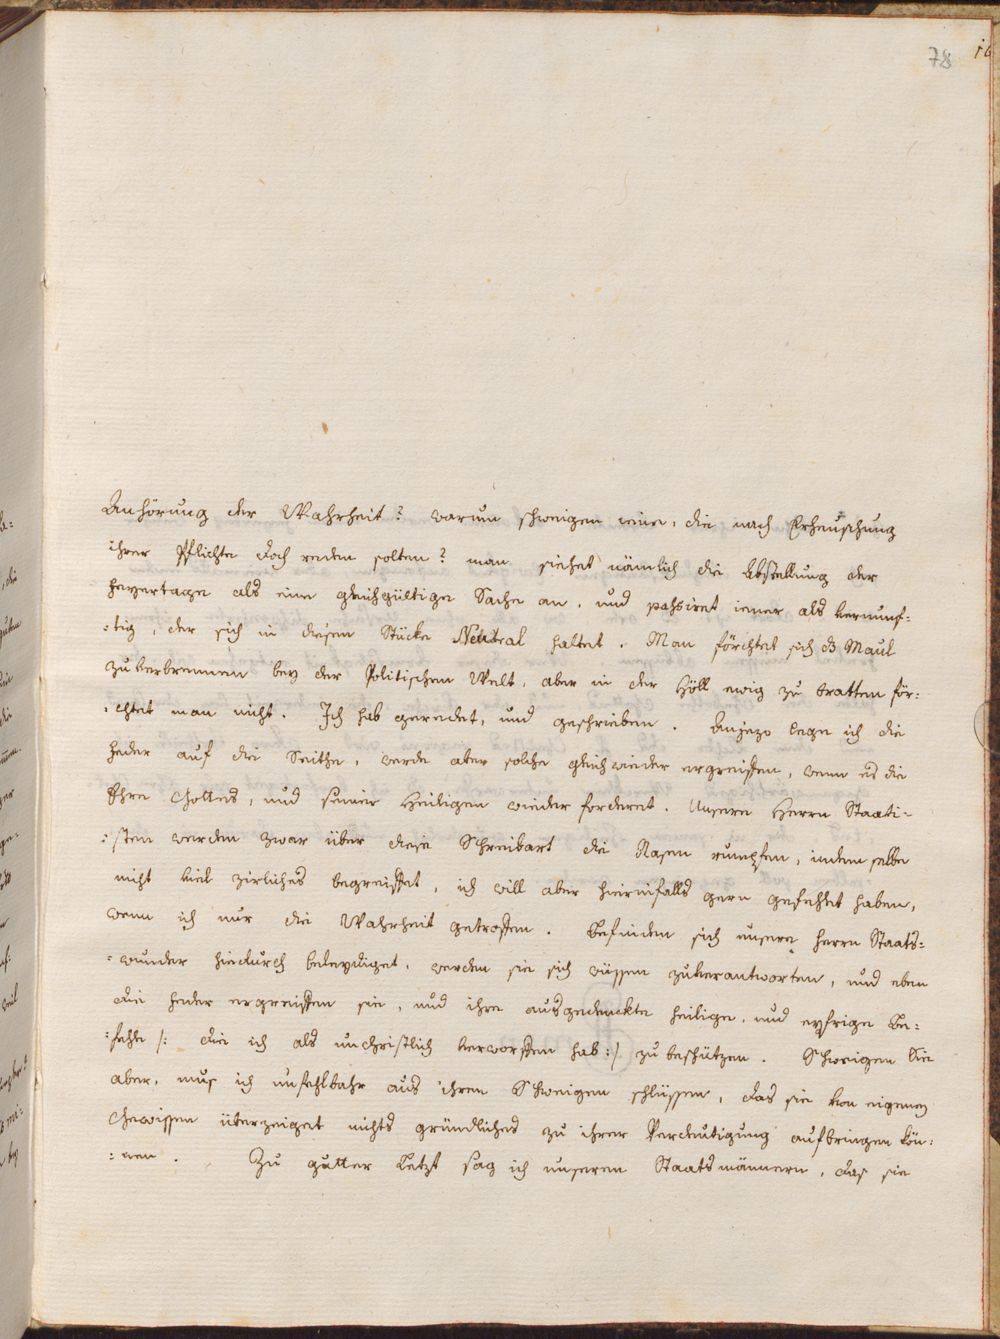 78
Anhörung der Wahrheit? warum schweigen eine, die nach Erheuschung
ihrer Pflichte doch reden solten? man siehet nämlich die Abstellung der
Feyertage als eine gleichgültige Sache an, und passiret iener als vernunf-
:tig, der sich in diesem Stücke Neutral haltet. Man förchtet sich das Maul
zuverbrennen bey der Politischen Welt, aber in der Höll ewig zu bratten för:
:chtet man nicht. Ich hab geredet, und geschrieben. Anjezo lege ich die
Feder auf die Seithe, werde aber solche gleich wieder ergreiffen, wenn es die
Ehre Gottes, und seiner Heiligen wieder forderet. Unsere Herrn Staati:
:sten werden zwar über diese Schreibart die Nasen rumpfen, indem selbe
nicht viel zirliches begreiffet, ich will aber hierinfalls gern gefehlet haben,
wenn ich nur die Wahrheit getroffen. Befinden sich unsere Herrn Staats:
:wunder hiedurch beleydiget, werden sie sich wissen zuverantworten, und eben
die Feder ergreiffen sie, und ihre ausgedenckte heilige, und eyfrige Be:
:fehle /: die ich als unchristlich verworffen hab :/ zu beschützen. Schweigen Sie
aber, mus ich unfehlbahr aus ihrem Schweigen schlüssen, das sie von eigenen
Gewissen überzeiget nichts gründliches zu ihrer Verdeutigung aufbringen kön:
:nen. Zu gutter Letzt sag ich unseren Staatsmännern, das sie